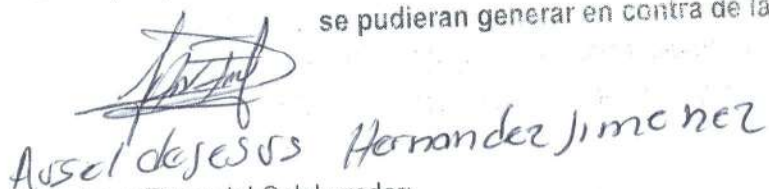 se pudieran generar en contra de la
Aussel de Jesus Hernandez Jimenez